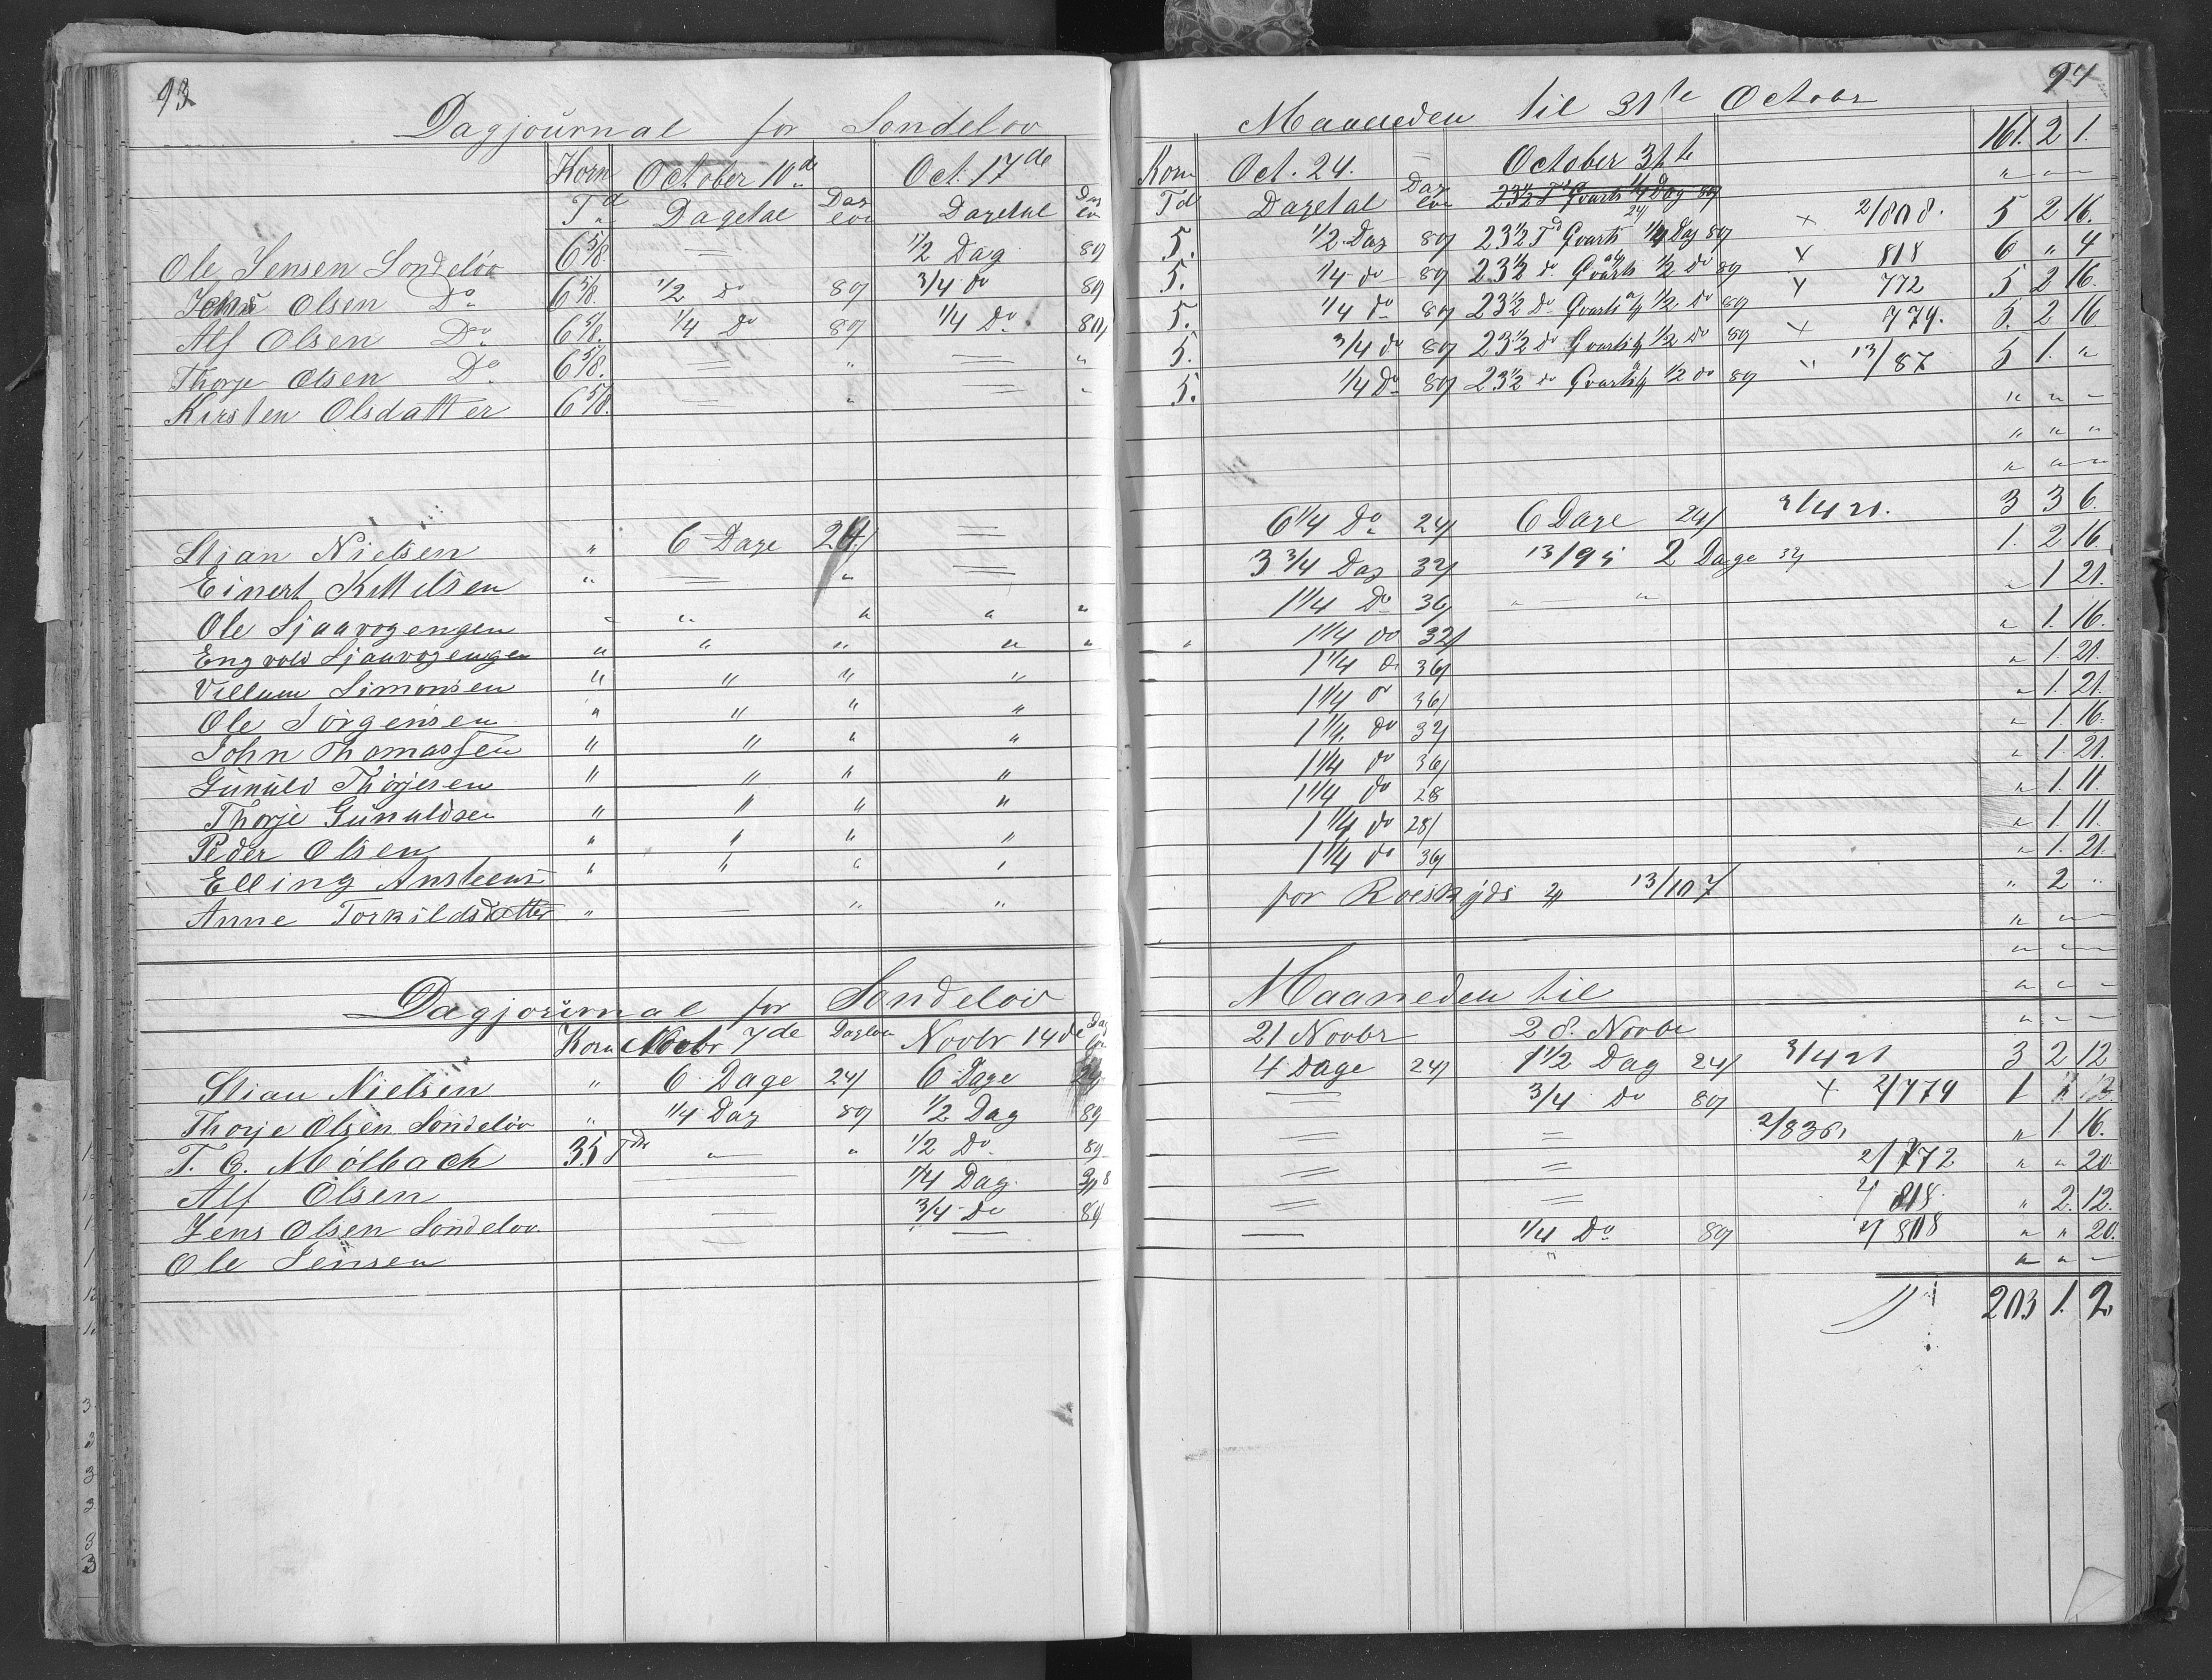 93
Dagjournal for Sondelov
Korn October 10de Oct. 17de
Td Dagetal Dag Løn Dagetal Dag Løn
Ole Jensen Sondeløv 6 5/8. = 1/2 Dag 80/
Jens Olsen Do 6 5/8. 1/2 Do 80/ 3/4 do 80/
Alf Olsen Do 6 5/8. 1/4 Do 80/ 1/4 Do 80/
Thorje Olsen Do 6 5/8. = " = "
Kirsten Olsdatter 6 5/8. = " = "
Stian Nielsen " 6 Dage 24/ =
Einert Kittilsen " = " =
Ole Sjaavogengen " " " " "
Engvold Sjaavogengen " " " " "
Villum Simonsen " " " "
Ole Jørgensen " " " "
John Thomassen " " " "
Gunuld Thorjesen " " " "
Thorje Gunuldsen " " " "
Peder Olsen " " " "
Elling Anstens " " " "
Anne Torkildsdatter " — " "
Dagjournal for Sondelov
Korn Novbr 7de Dagløn Novbr 14de Dag Løn
Stian Nielsen " 6 Dage 24/ 6 Dage 24/
Thorje Olsen Sondeløv " 1/4 Dag 80/ 1/2 Dag 80/
T. C. Mølbach 35 Tdr " " 1/2 Do 80
Alf Olsen 1/4 Dag
Jens Olsen Sondelov = 3/4 Do 80/
Ole Jensen = —
94
Maaneden til 31te Octobr 161. 2 1.
Korn Oct. 24. October 31te " " "
Td Dagetal Dag Løn
5. 1/2 Dag 80/ 23 1/2 Td Qvarts 24/ 1/4 Dag 80/ × 2/808. 5 2 16.
5. 1/4 do 80/ 23 1/2 do Qvarts 1/2 do 80/ × 818 6 " 4
5. 1/4 do 80/ 23 1/2 Do Qvarts 1/2 Do 80/ × 772 5 2 16.
5. 3/4 do 80/ 23 1/2 do Qvarts 1/2 do 80/ × 779. 5. 2 16
5. 1/4 Do 80/ 23 1/2 do Qvarts 1/2 do 80/ " 13/87 5 1. "
" " "
" " "
" " "
6 1/4 Do 24/ 6 Dage 24/ 3/421. 3 3 6.
3 3/4 Dag 32/ 13/95 2 Dage 32/ 1. 2 16.
1 1/4 Do 36/ " " " 1 21.
" 1 1/4 do 32/ " 1. 16.
1 1/4 do 36/ " 1 21.
1 1/4 do 36/ " 1. 21.
1 1/4. do 32/ " 1. 16.
1 1/4 do 36/ " 1. 21.
1 1/4 do 28 " 1. 11.
1 1/4 do 28/ " 1 11.
1 1/4 do 36/ " 1. 21.
for Roeskyds 13/107 " 2 "
" " "
" " "
Maaneden til " " "
21 Novbr 28. Novbr " " "
4 Dage 24/ 1 1/2 Dag 24/ 3/421 3 2 12
= 3/4 Do 80/ × 2/779 1
= = 2/836, " 1. 16.
= = 2/772 " " 20
= = 2/818. " 2. 12.
— 1/4 Do 80/ 2/808 " " 20.
" " " "
203 1. 2